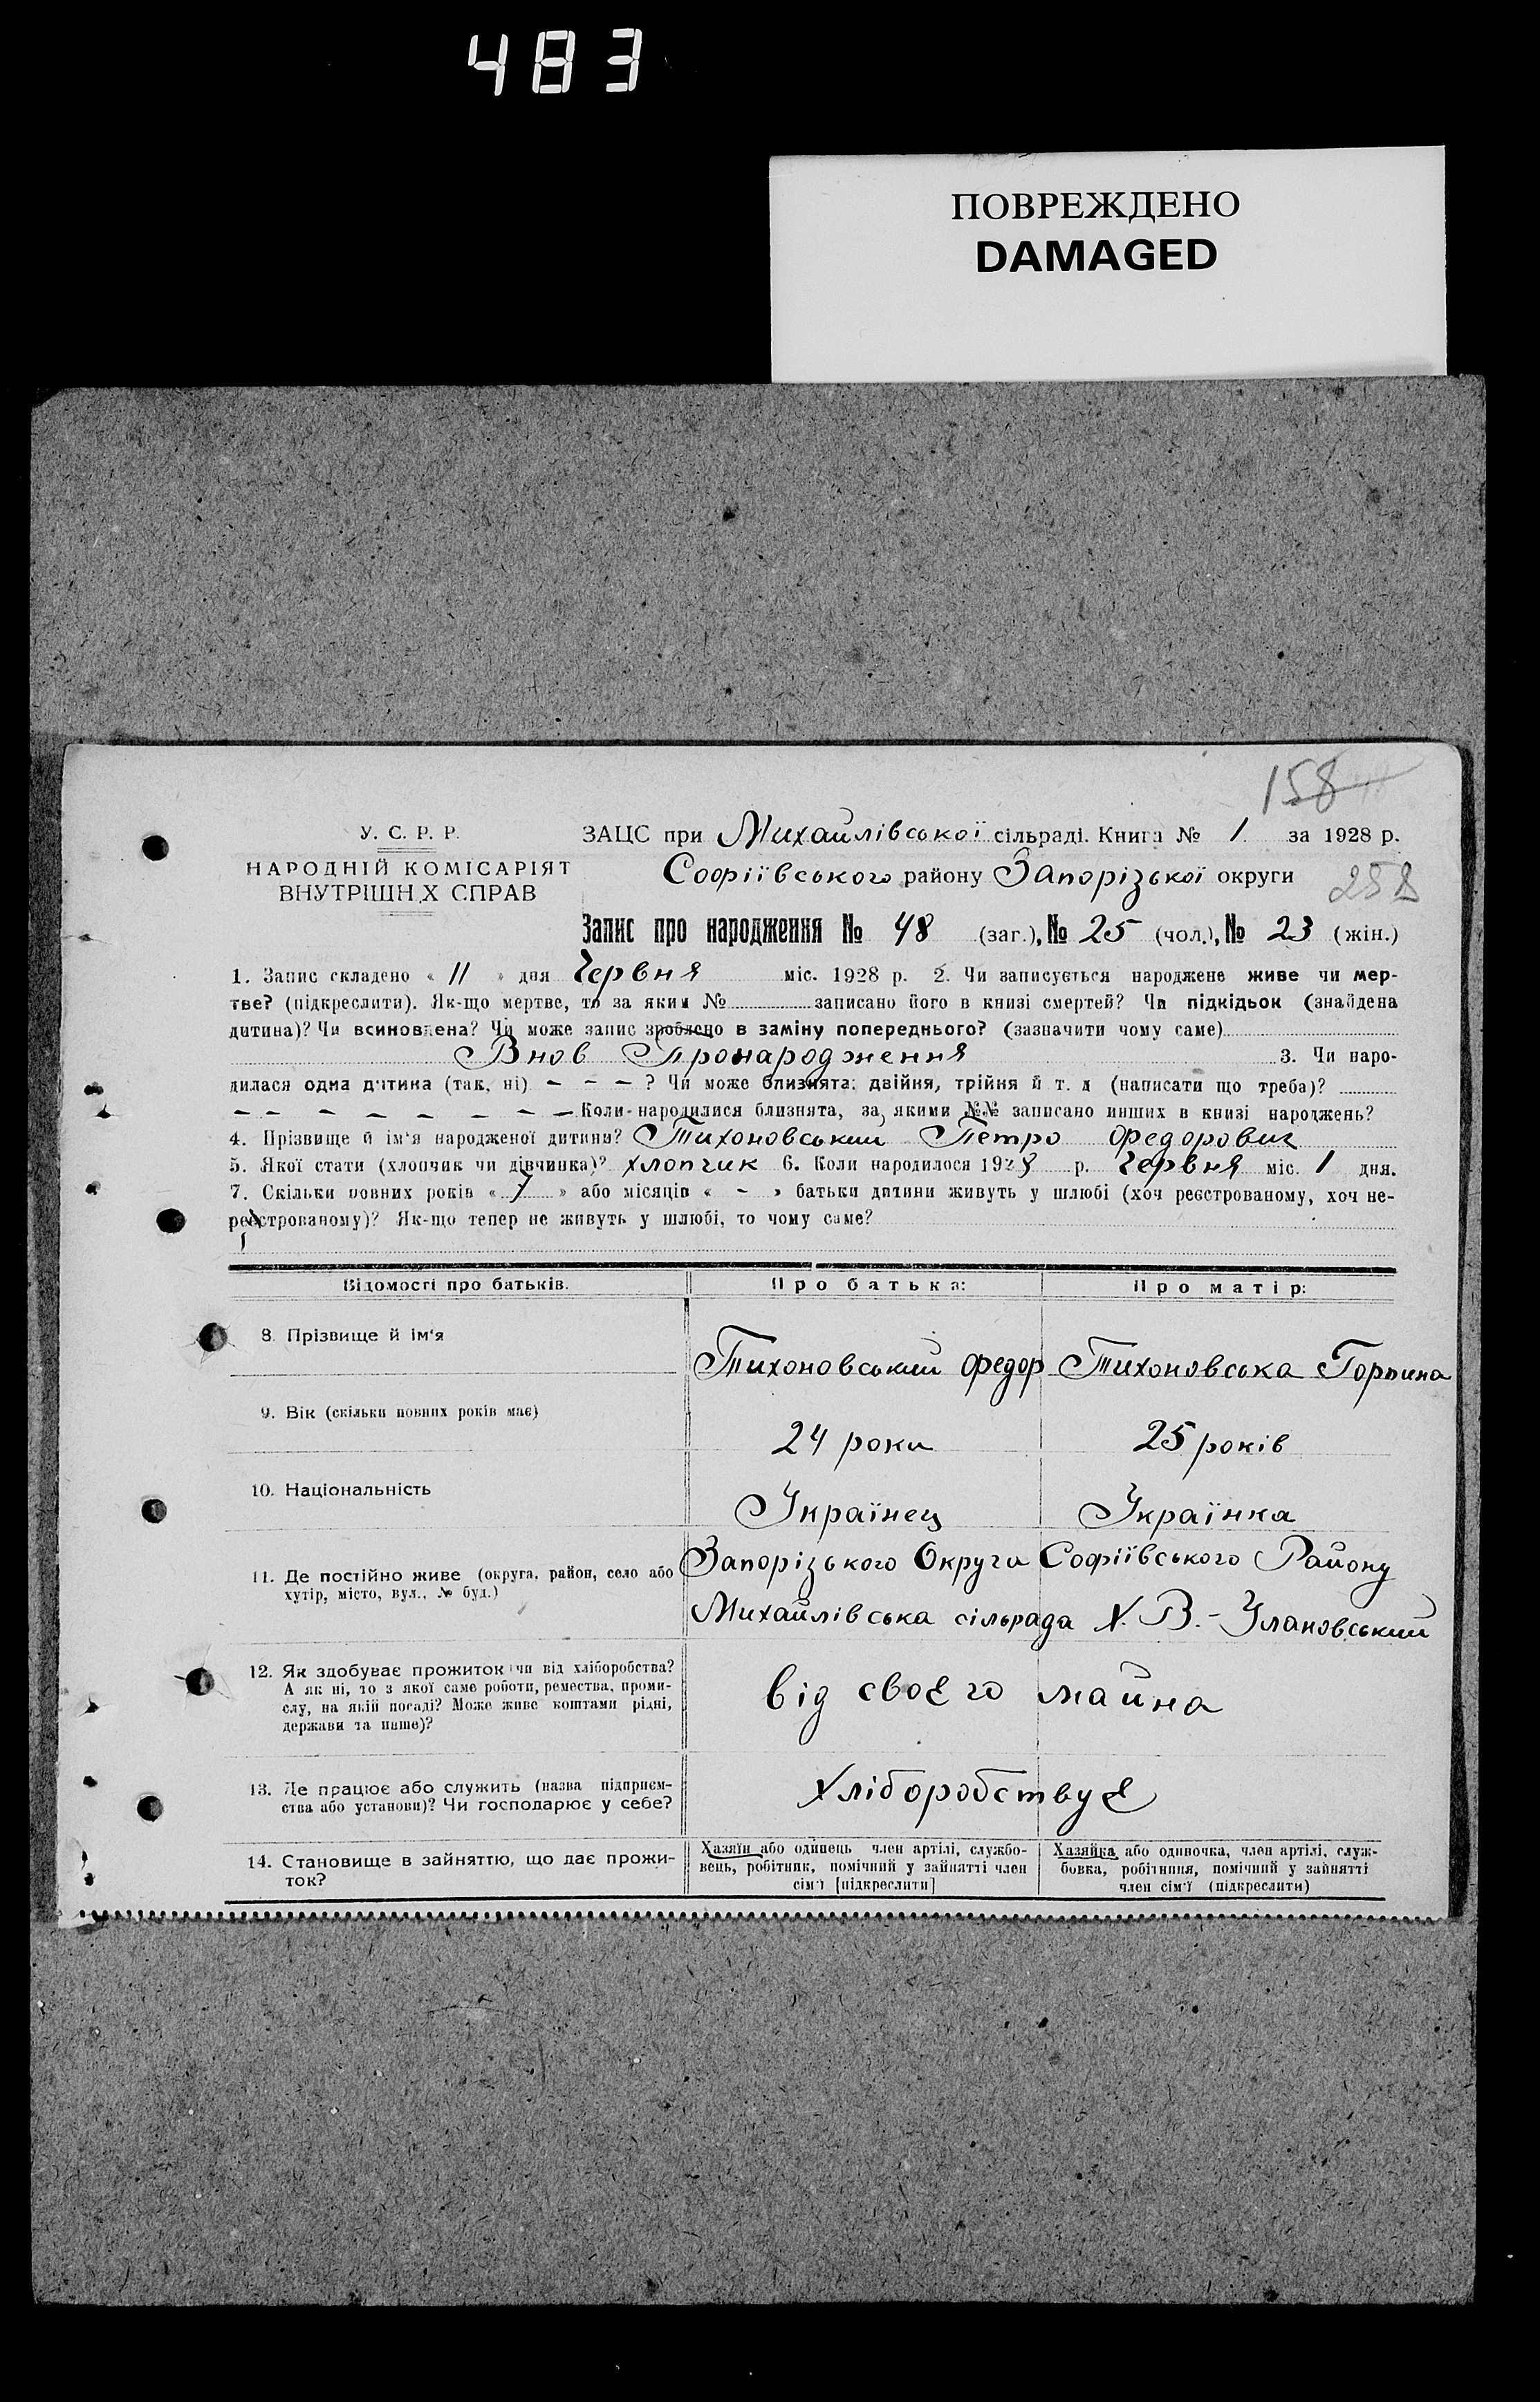 483
ПОВРЕЖДЕНО
DAMAGED
158
У. С. Р. Р.
НАРОДНІЙ КОМІСАРІЯТ
ВНУТРІШН Х СПРАВ
ЗАЦС при Михайлівської сільраді. Книга № 1 за 1928 р.
Софіївського району Запорізької округи
258
Запис про народження № 48 (заг.), № 25 (чол.), № 23 (жін.)
1. Запис складено « 11 » дня Червня міс. 1928 р. 2. Чи записується народжене живе чи мер-
тве? (підкреслити). Як-що мертве, то за яким № записано його в книзі смертей? Чи підкідьок (знайдена
дитина)? Чи всиновлена? Чи може запис зроблено в заміну попереднього? (зазначити чому саме)
Внов Пронародження 3. Чи наро-
дилася одна дитина (так, ні) – – – ? Чи може близнята: двійня, трійня й т. д (написати що треба)?
– – – – – – – – – Коли народилися близнята, за якими №№ записано инших в книзі народжень?
4. Прізвище й ім'я народженої дитини? Тихоновський Петро Федорович
5. Якої стати (хлопчик чи дівчинка)? хлопчик 6. Коли народилося 1928 р. Червня міс. 1 дня.
7. Скільки повних років « 7 » або місяців « - » батьки дитини живуть у шлюбі (хоч реєстрованому, хоч не-
реєстрованому)? Як-що тепер не живуть у шлюбі, то чому саме?
Відомості про батьків. Про батька: Про матір:
8. Прізвище й ім'я Тихоновський Федор Тихоновська Горпина
9. Вік (скільки повних років має) 24 роки 25 років
10. Національність Українец Українка
11. Де постійно живе (округа, район, село або
хутір, місто, вул., № буд.)
Запорізького Округи Софіївського Району
Михайлівська сільрада Х. В.-Улановський
12. Як здобуває прожиток (чи від хліборобства?
А як ні, то з якої саме роботи, ремества, проми-
слу, на якій посаді? Може живе коштами рідні,
держави та инше)?
від своєго майна
13. Де працює або служить (назва підприєм-
ства або установи)? Чи господарює у себе?
Хліборобствує
14. Становище в зайняттю, що дає прожи-
ток?
Хазяїн або одинець член артілі, службо-
вець, робітник, помічний у зайнятті член
сім'ї [підкреслити]
Хазяйка або одиночка, член артілі, служ-
бовка, робітниця, помічний у зайнятті
член сім'ї (підкреслити)